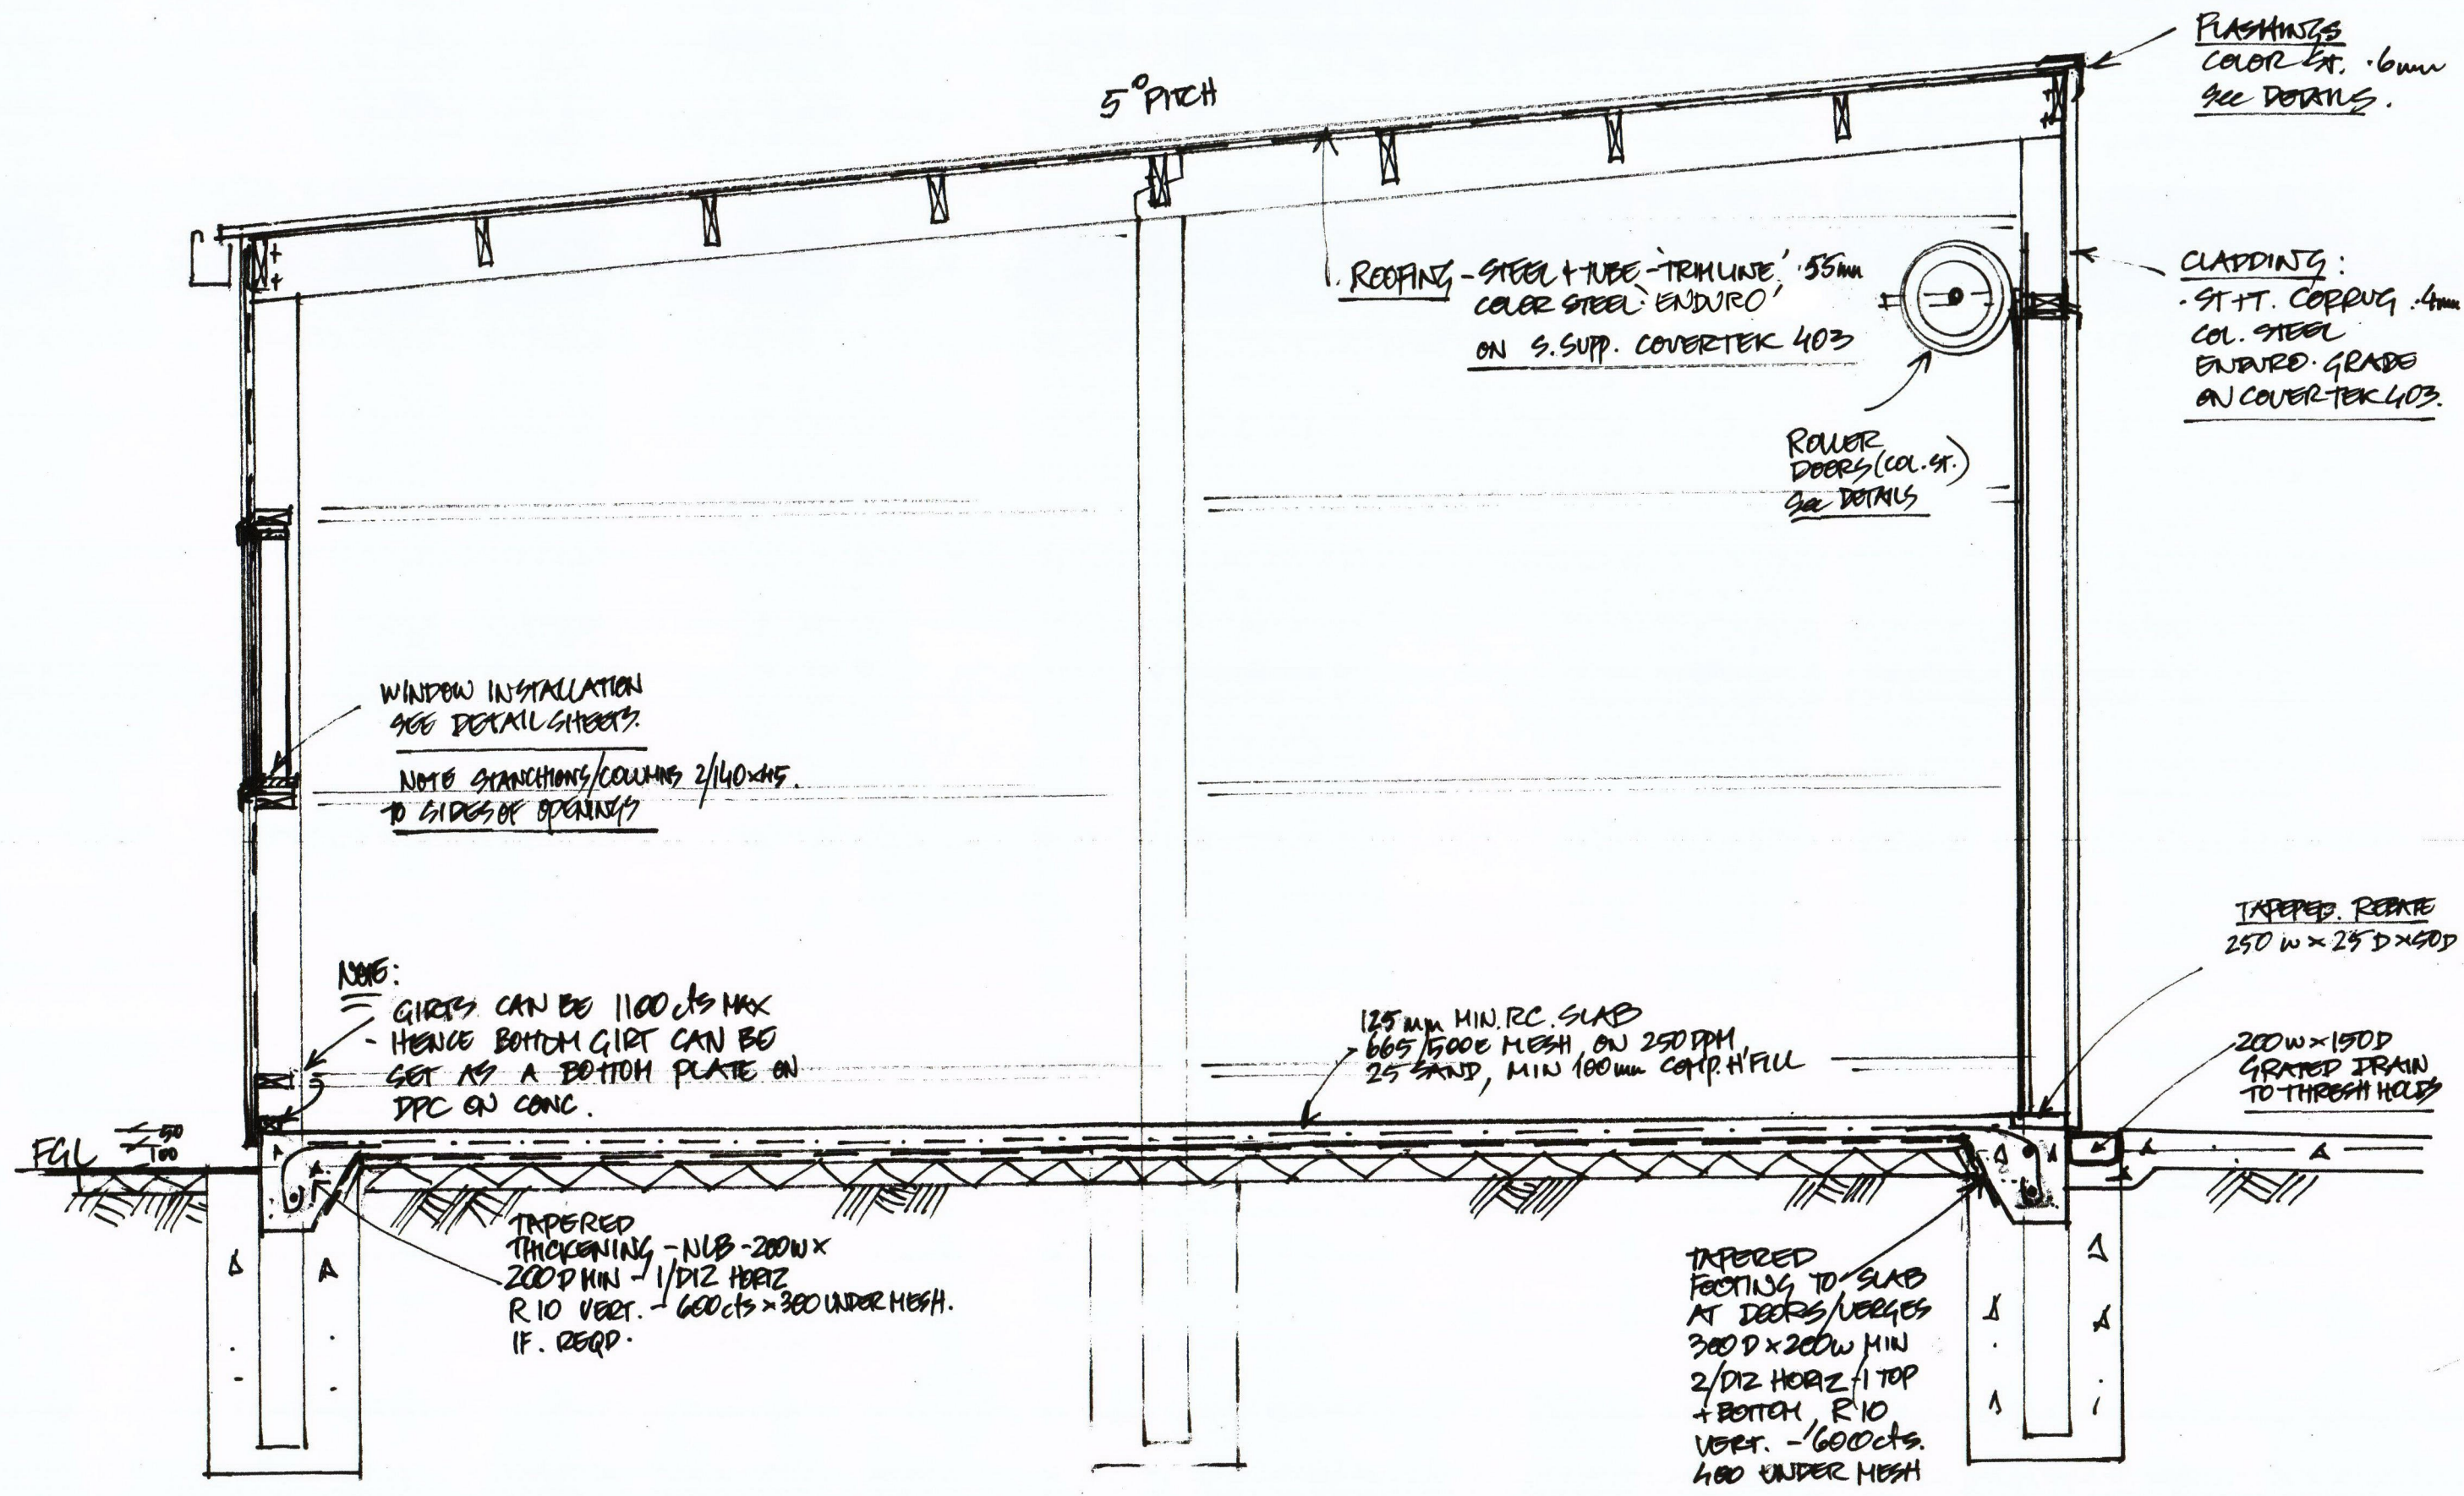 5° PITCH
FLASHINGS
COLOR ST. .6mm
SEE DETAILS.
ROOFING - STEEL & TUBE - 'TRIMLINE' .55mm
COLOR STEEL 'ENDURO'
ON S. SUPP. COVERTEK 403
CLADDING:
· ST+T. CORRUG .4mm
COL. STEEL
ENDURO. GRADE
ON COVERTEK 403.
ROLLER
DOORS (COL. ST.)
SEE DETAILS
WINDOW INSTALLATION
SEE DETAIL SHEETS.
NOTE STANCHIONS/COLUMNS 2/140x45.
TO SIDES OF OPENINGS
TAPERED. REBATE
250 W x 25 D x 50 D
NOTE:
GIRTS CAN BE 1100 cts MAX
- HENCE BOTTOM GIRT CAN BE
SET AS A BOTTOM PLATE ON
DPC ON CONC.
125mm MIN. RC. SLAB
- 665/500E MESH, ON 250 DPM,
25 SAND, MIN 100mm COMP. H'FILL
200 W x 150 D
GRATED DRAIN
TO THRESH HOLDS
FGL
50
100
TAPERED
THICKENING - NLB - 200 W x
200 D MIN - 1/D12 HORIZ
R10 VERT. - 600 cts x 300 UNDER MESH.
IF. REQD.
TAPERED
FOOTING TO SLAB
AT DOORS/VERGES
300 D x 200 W MIN
2/D12 HORIZ - 1 TOP
+ BOTTOM, R10
VERT. - 600 cts.
400 UNDER MESH